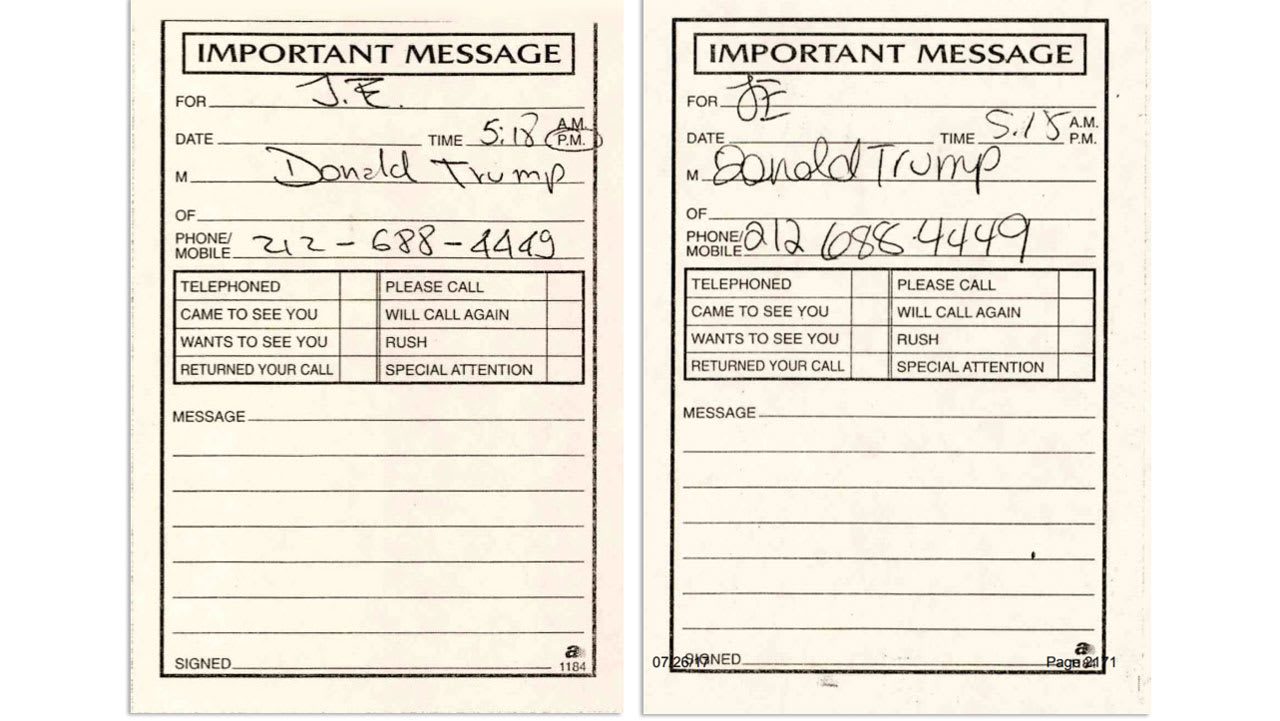 IMPORTANT MESSAGE
FOR J.E.
DATE TIME 5:18 A.M. P.M.
M Donald Trump
OF
PHONE/ MOBILE 212-688-4449
TELEPHONED PLEASE CALL
CAME TO SEE YOU WILL CALL AGAIN
WANTS TO SEE YOU RUSH
RETURNED YOUR CALL SPECIAL ATTENTION
MESSAGE
SIGNED
a
1184
IMPORTANT MESSAGE
FOR JE
DATE TIME 5:15 A.M. P.M.
M Donald Trump
OF
PHONE/ MOBILE 212 688-4449
TELEPHONED PLEASE CALL
CAME TO SEE YOU WILL CALL AGAIN
WANTS TO SEE YOU RUSH
RETURNED YOUR CALL SPECIAL ATTENTION
MESSAGE
SIGNED
a
07/26/17 Page 2171